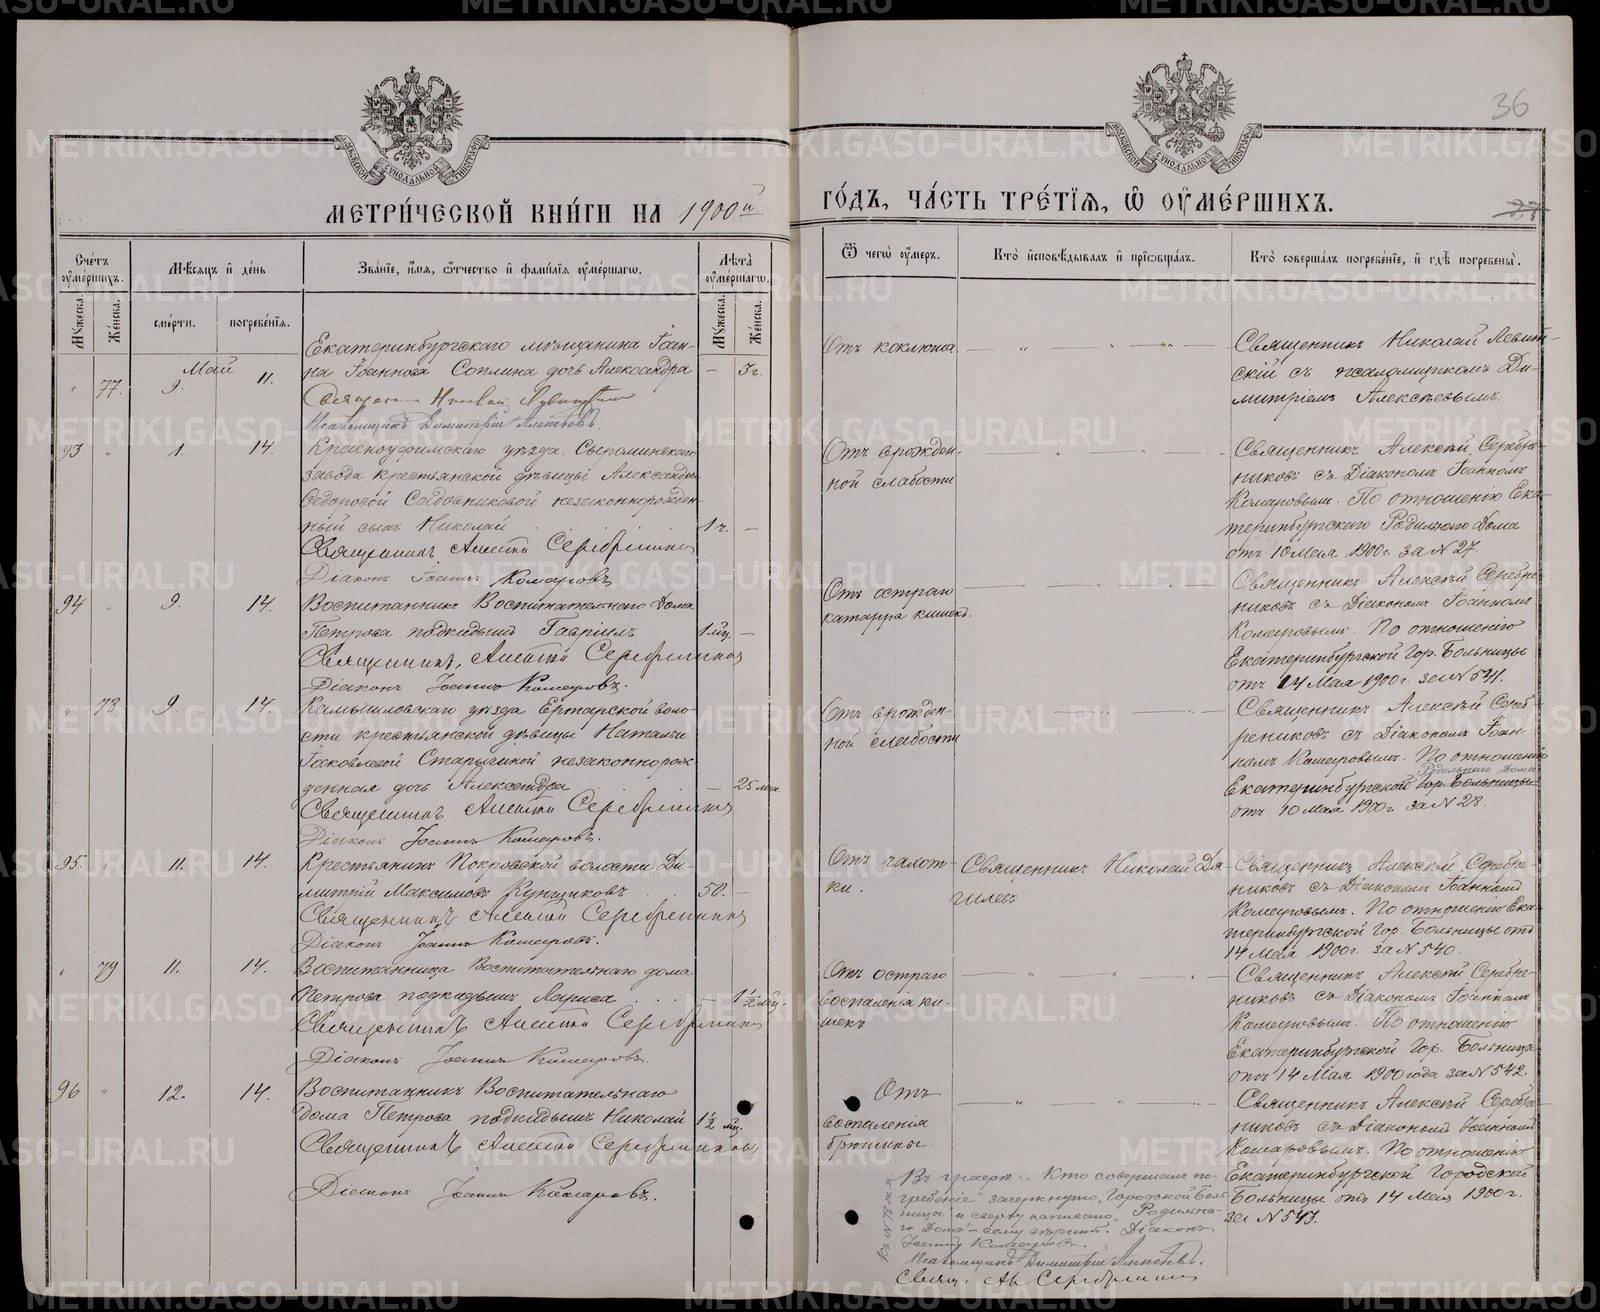 36
МЕТРИ́ЧЕСКОЙ КНИ́ГИ НА 1900й
ГО́ДЪ, ЧА́СТЬ ТРЕ́ТІЯ, Ѡ ОУМЕ́РШИХЪ.
Счетъ оумершихъ.
Мужеска.
Женска.
Мѣсяцъ и день
смерти.
погребенія.
Званіе, имя, отчество и фамилія оумершаго.
Лѣта оумершаго.
Мужеска.
Женска.
Ѿ чего оумеръ.
Кто исповѣдывалъ и пріобщалъ.
Кто совершалъ погребеніе, и гдѣ погребены.
Май
" 77. 9. 11.
Екатеринбургскаго мѣщанина Іоан-
на Іоаннова Соплина дочь Александра — 3 г.
Священникъ Николай Левитскій
Псаломщикъ Димитрій Алексѣевъ.
Отъ коклюша.
Священникъ Николай Левит-
скій съ псаломщикомъ Ди-
митріемъ Алексѣевымъ.
93 " 1. 14.
Красноуфимскаго уѣзда, Сыгоминскаго
завода крестьянской дѣвицы Александры
Ѳедоровой Садовниковой незаконнорожден-
ный сынъ Николай 1 ч. —
Священникъ Алексѣй Серебренниковъ
Діаконъ Іоаннъ Комаровъ
Отъ врожден-
ной слабости
Священникъ Алексѣй Серебре-
никовъ съ Діакономъ Іоанномъ
Комаровымъ. По отношенію Ека-
теринбургскаго Родильнаго Дома
отъ 10 Мая 1900 г. за № 27.
94 " 9. 14.
Воспитанникъ Воспитательнаго Дома
Петрова подкидышъ Гавріилъ 1 мц. —
Священникъ Алексѣй Серебренниковъ
Діаконъ Іоаннъ Комаровъ.
Отъ остраго
катарра кишекъ.
Священникъ Алексѣй Серебре-
никовъ съ Діакономъ Іоанномъ
Комаровымъ. По отношенію
Екатеринбургской Гор. Больницы
отъ 14 Мая 1900 г. за № 541.
" 78 9 14.
Камышловскаго уѣзда Ертарской воло-
сти крестьянской дѣвицы Наталіи
Іаковлевой Старыгиной незаконнорож-
денная дочь Александра — 25 мин.
Священникъ Алексѣй Серебренниковъ
Діаконъ Іоаннъ Комаровъ.
Отъ врожден-
ной слабости
Священникъ Алексѣй Сереб-
рениковъ съ Діакономъ Іоан-
номъ Комаровымъ. По отношенію
Родильнаго Дома
Екатеринбургской Гор. Больницы
отъ 10 Мая 1900 г. за № 28.
95. " 11. 14.
Крестьянинъ Покровской волости Ди-
митрій Максимовъ Кунщиковъ 50. —
Священникъ Алексѣй Серебренниковъ
Діаконъ Іоаннъ Комаровъ.
Отъ чахот-
ки.
Священникъ Николай Дя-
гилевъ
Священникъ Алексѣй Серебре-
никовъ съ Діакономъ Іоанномъ
Комаровымъ. По отношенію Ека-
теринбургской Гор. Больницы отъ
14 Мая 1900 г. за № 540.
" 79 11. 14.
Воспитанница Воспитательнаго дома
Петрова подкидышъ Лариса — 1½ мц.
Священникъ Алексѣй Серебренниковъ
Діаконъ Іоаннъ Комаровъ.
Отъ остраго
воспаленія ки-
шекъ
Священникъ Алексѣй Серебре-
никовъ съ Діакономъ Іоанномъ
Комаровымъ. По отношенію
Екатеринбургской Гор. Больницы
отъ 14 Мая 1900 года за № 542.
96 " 12. 14.
Воспитанникъ Воспитательнаго
Дома Петрова подкидышъ Николай 1½ мц.
Священникъ Алексѣй Серебренниковъ
Діаконъ Іоаннъ Комаровъ.
Отъ
воспаленія
брюшины.
Священникъ Алексѣй Серебре-
никовъ съ Діакономъ Іоанномъ
Комаровымъ. По отношенію
Екатеринбургской Городской
Больницы отъ 14 Мая 1900 г.
за № 543.
Въ графѣ: "Кто совершалъ по-
гребеніе" зачеркнуто "Городской Боль-
ницы" и сверху написано "Родильна-
го Дома" — сему вѣрить. Діаконъ
Іоаннъ Комаровъ.
Псаломщикъ Димитрій Алексѣевъ.
Свящ. Ал. Серебренниковъ
METRIKI.GASO-URAL.RU